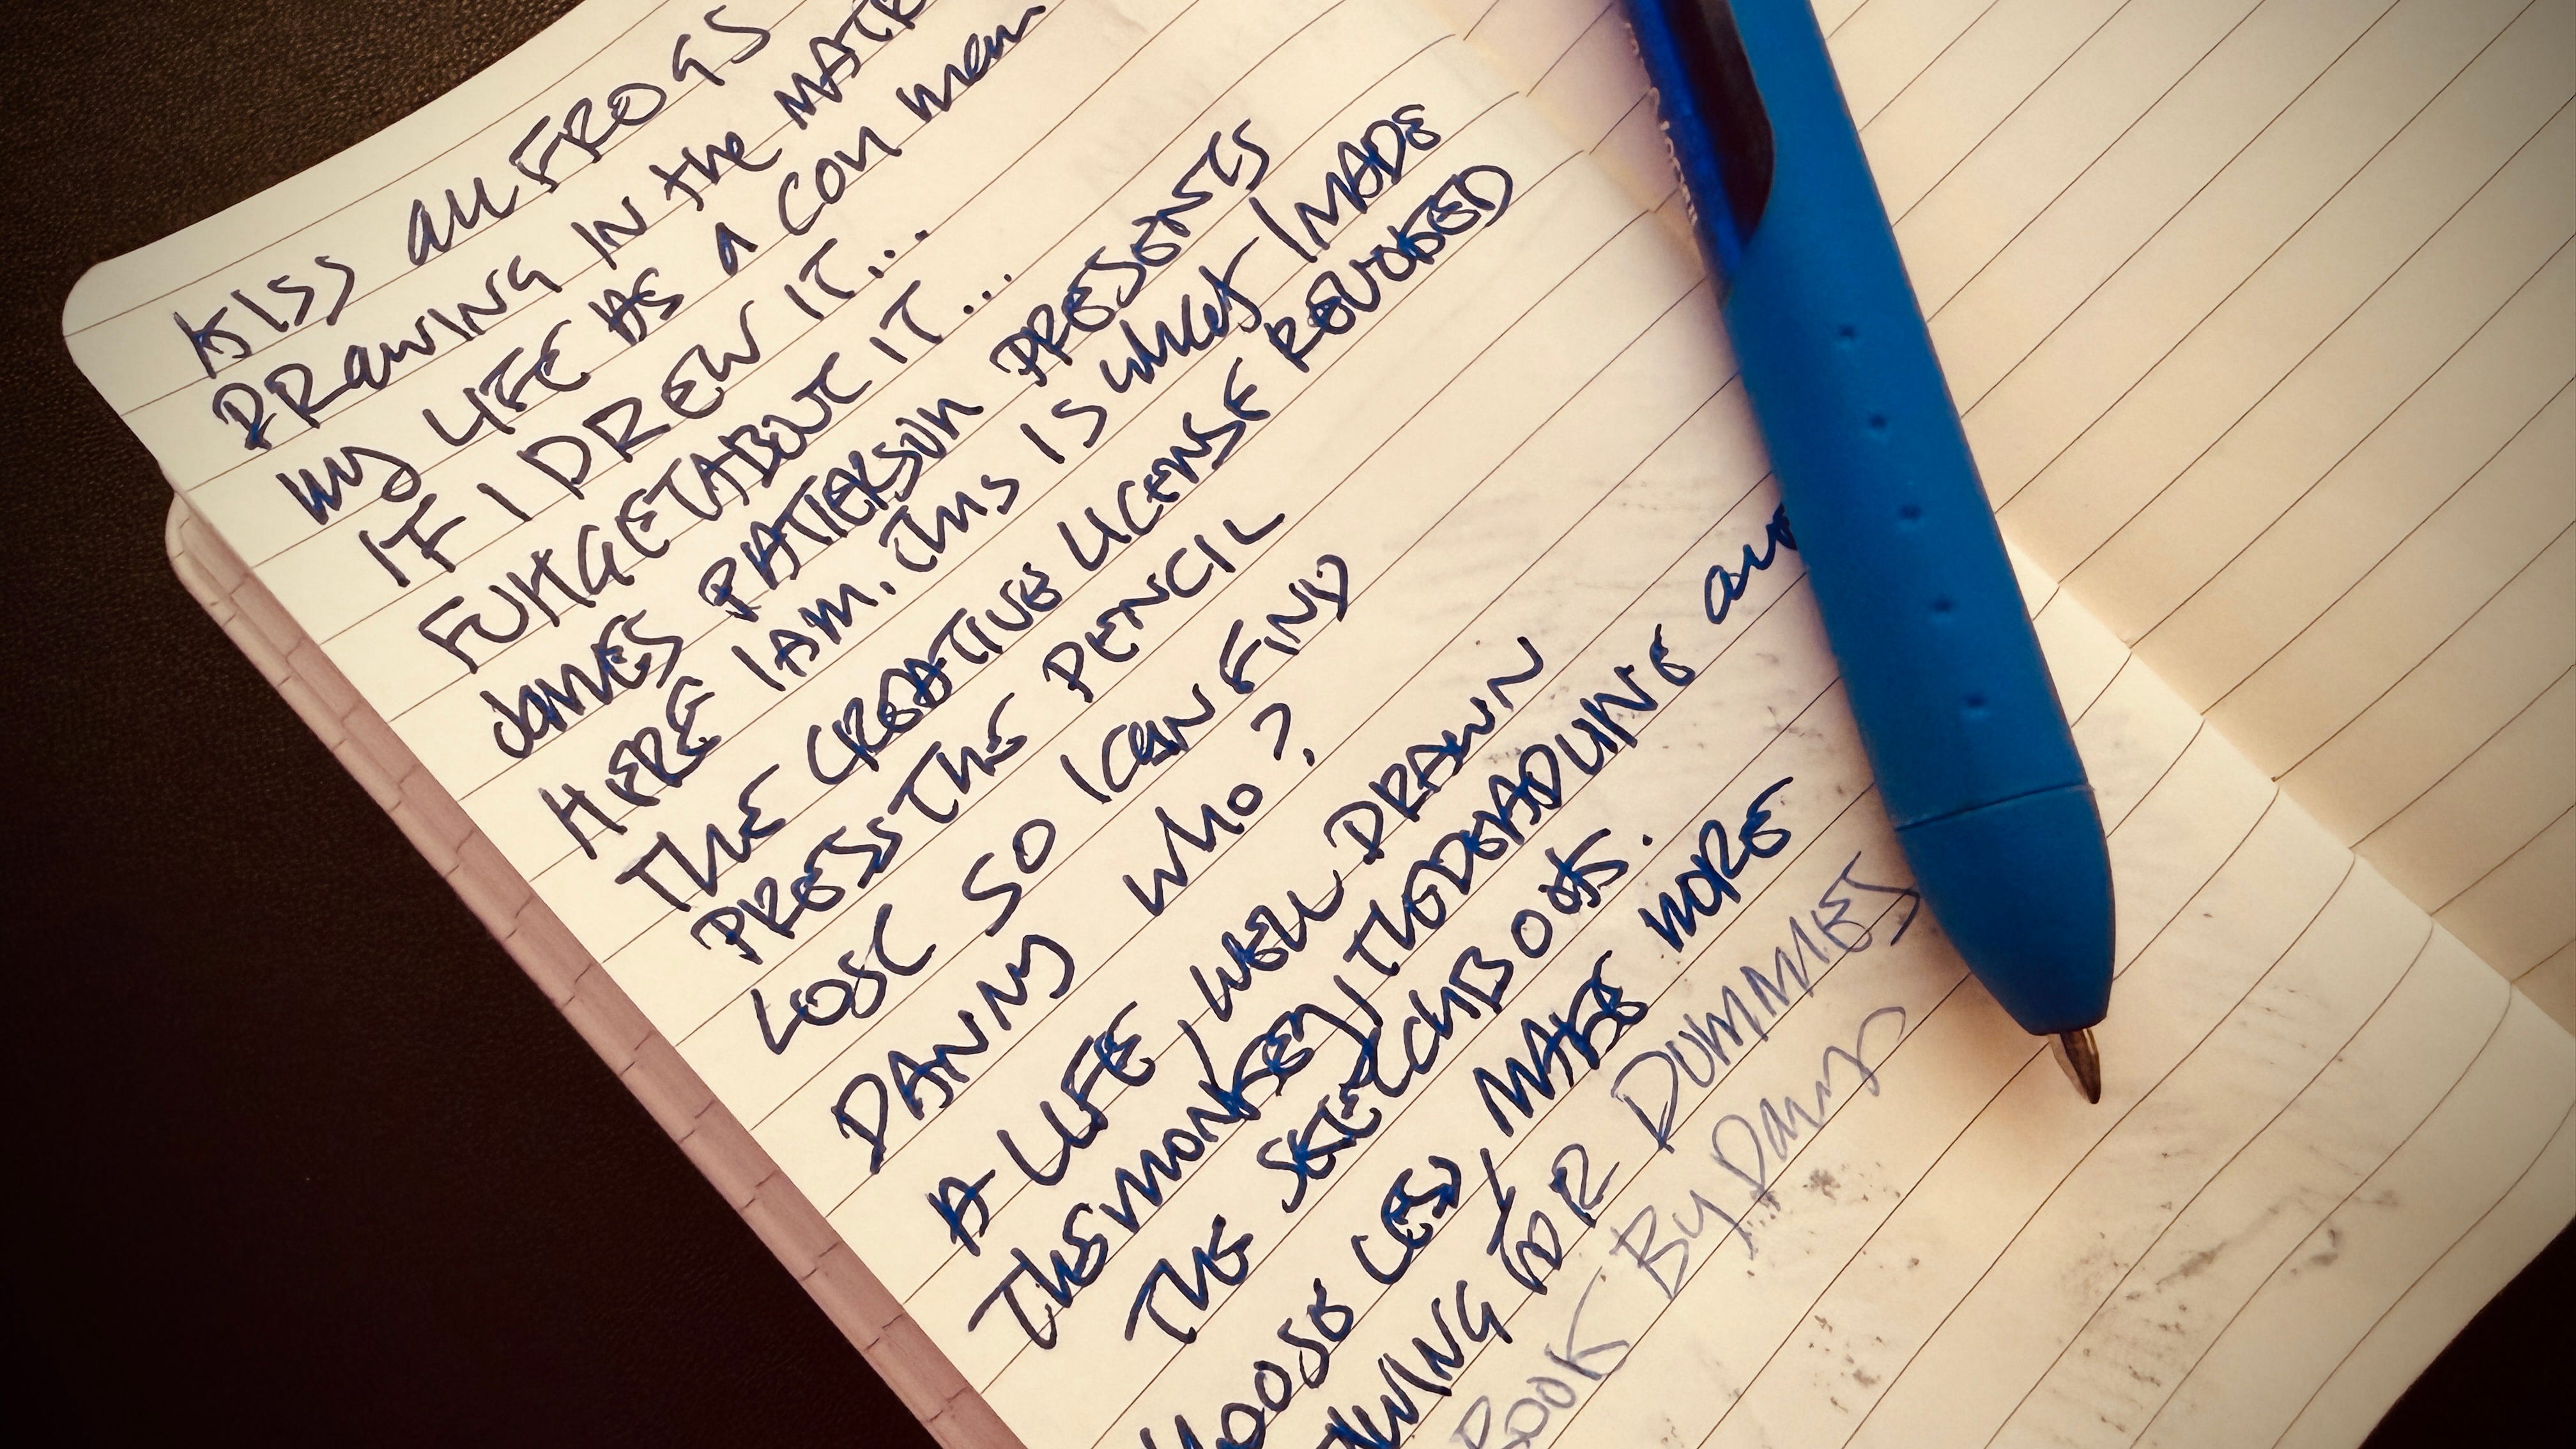 KISS all FROGS
DRAWING IN the MATR
My LIFE AS a CON man
IF I DREW IT...
FUHGETABOUT IT...
JAMES PATTERSON PRESENTS
HERE I AM. THIS IS what I MADE
THE CREATIVE LICENSE REVOKED
PRESS THE PENCIL
LOST SO I CAN FIND
DANNY who?
A LIFE, WELL DRAWN
THE MONKEY, THE DEADLINE and
THE SKETCHBOOK.
HOOSE LESS, MAKE MORE
WING FOR DUMMIES
BOOK By Danny